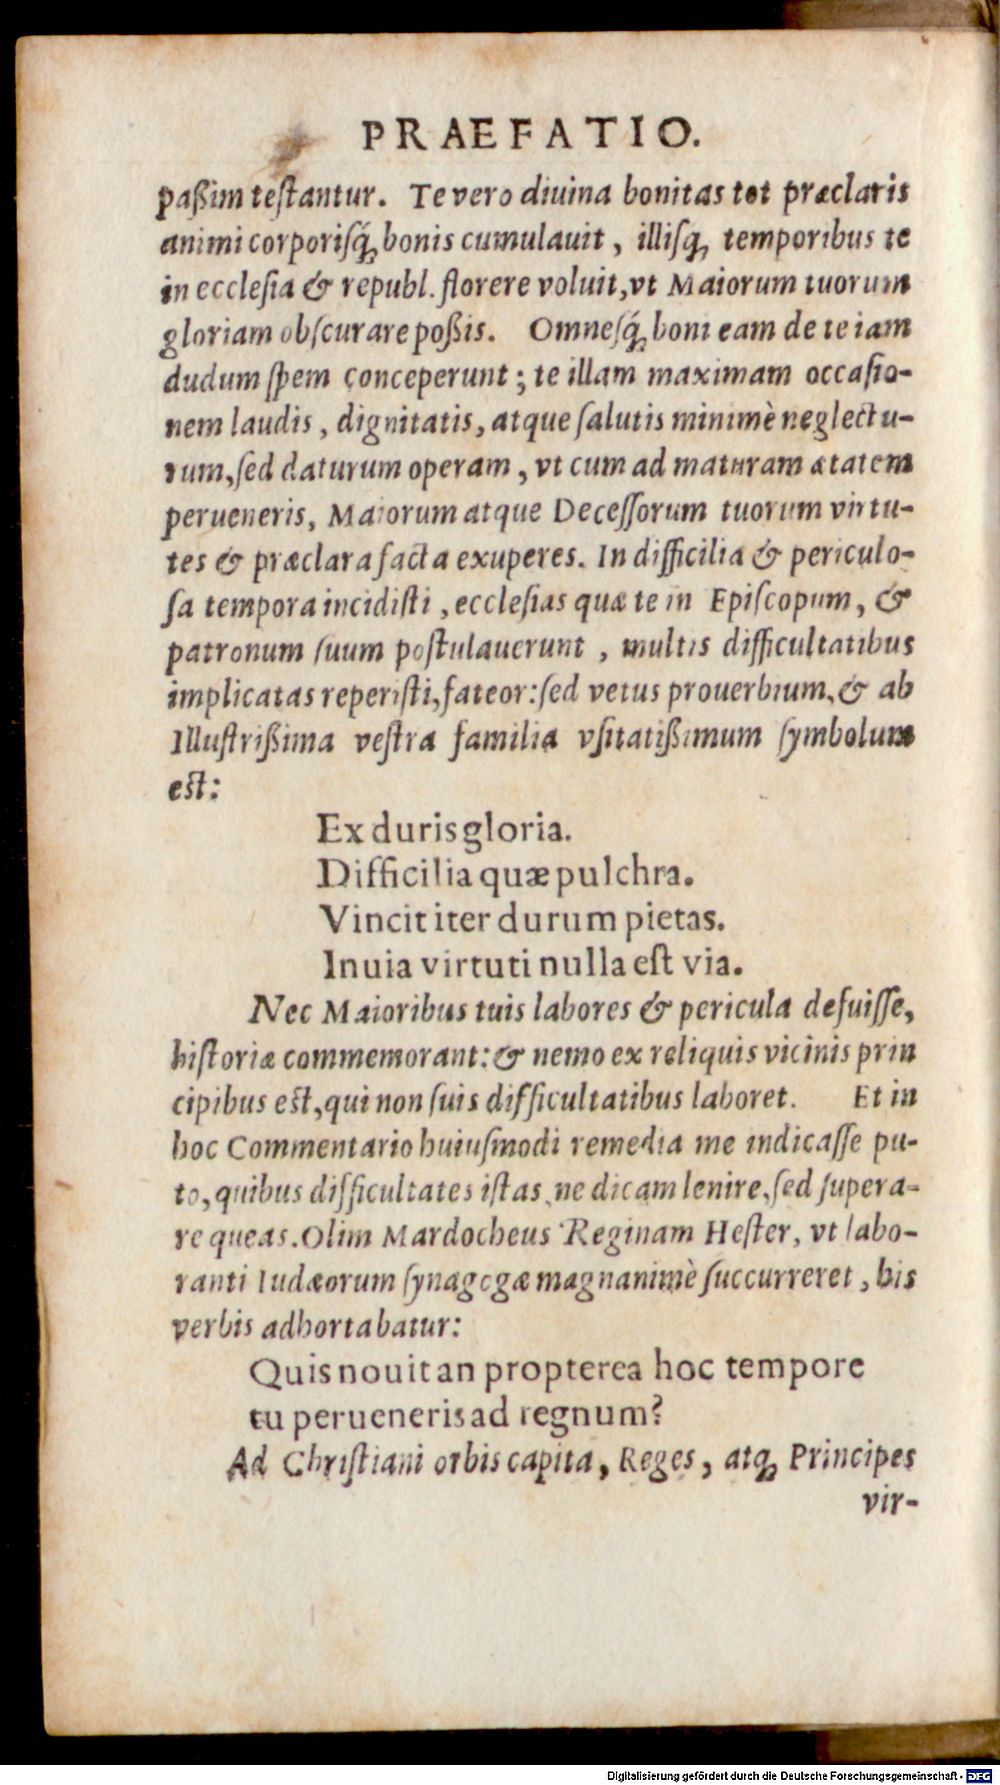 PRAEFATIO.
paßim teſtantur. Te vero diuina bonitas tot præclaris
animi corporiſq́; bonis cumulauit, illiſq; temporibus te
in eccleſia & republ. florere voluit, vt Maiorum tuorum
gloriam obſcurare poßis. Omneſq́; boni eam de te iam
dudum ſpem conceperunt; te illam maximam occaſio-
nem laudis, dignitatis, atque ſalutis minimè neglectu-
rum, ſed daturum operam, vt cum ad maturam ætatem
perueneris, Maiorum atque Deceſſorum tuorum virtu-
tes & præclara facta exuperes. In difficilia & periculo-
ſa tempora incidiſti, eccleſias quæ te in Epiſcopum, &
patronum ſuum poſtulauerunt, multis difficultatibus
implicatas reperiſti, fateor: ſed vetus prouerbium, & ab
Illuſtrißima veſtra familia vſitatißimum ſymbolum
eſt:
Ex duris gloria.
Difficilia quæ pulchra.
Vincit iter durum pietas.
Inuia virtuti nulla eſt via.
Nec Maioribus tuis labores & pericula defuiſſe,
hiſtoriæ commemorant: & nemo ex reliquis vicinis prin
cipibus eſt, qui non ſuis difficultatibus laboret. Et in
hoc Commentario huiuſmodi remedia me indicaſſe pu-
to, quibus difficultates iſtas, ne dicam lenire, ſed ſupera-
re queas. Olim Mardocheus Reginam Heſter, vt labo-
ranti Iudæorum ſynagogæ magnanimè ſuccurreret, his
verbis adhortabatur:
Quis nouit an propterea hoc tempore
tu perueneris ad regnum?
Ad Chriſtiani orbis capita, Reges, atq; Principes
vir-
Digitalisierung gefördert durch die Deutsche Forschungsgemeinschaft - DFG